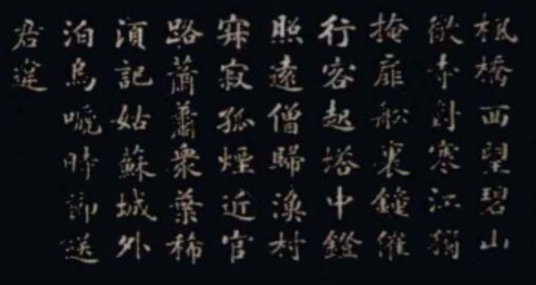 楓橋西望碧山
微寺對寒江獨
掩扉船裏鐘催
行客起塔中鐙
照遠僧歸漁村
寂寂孤煙近官
路蕭蕭衆葉稀
須記姑蘇城外
泊烏嗁時節送
君違